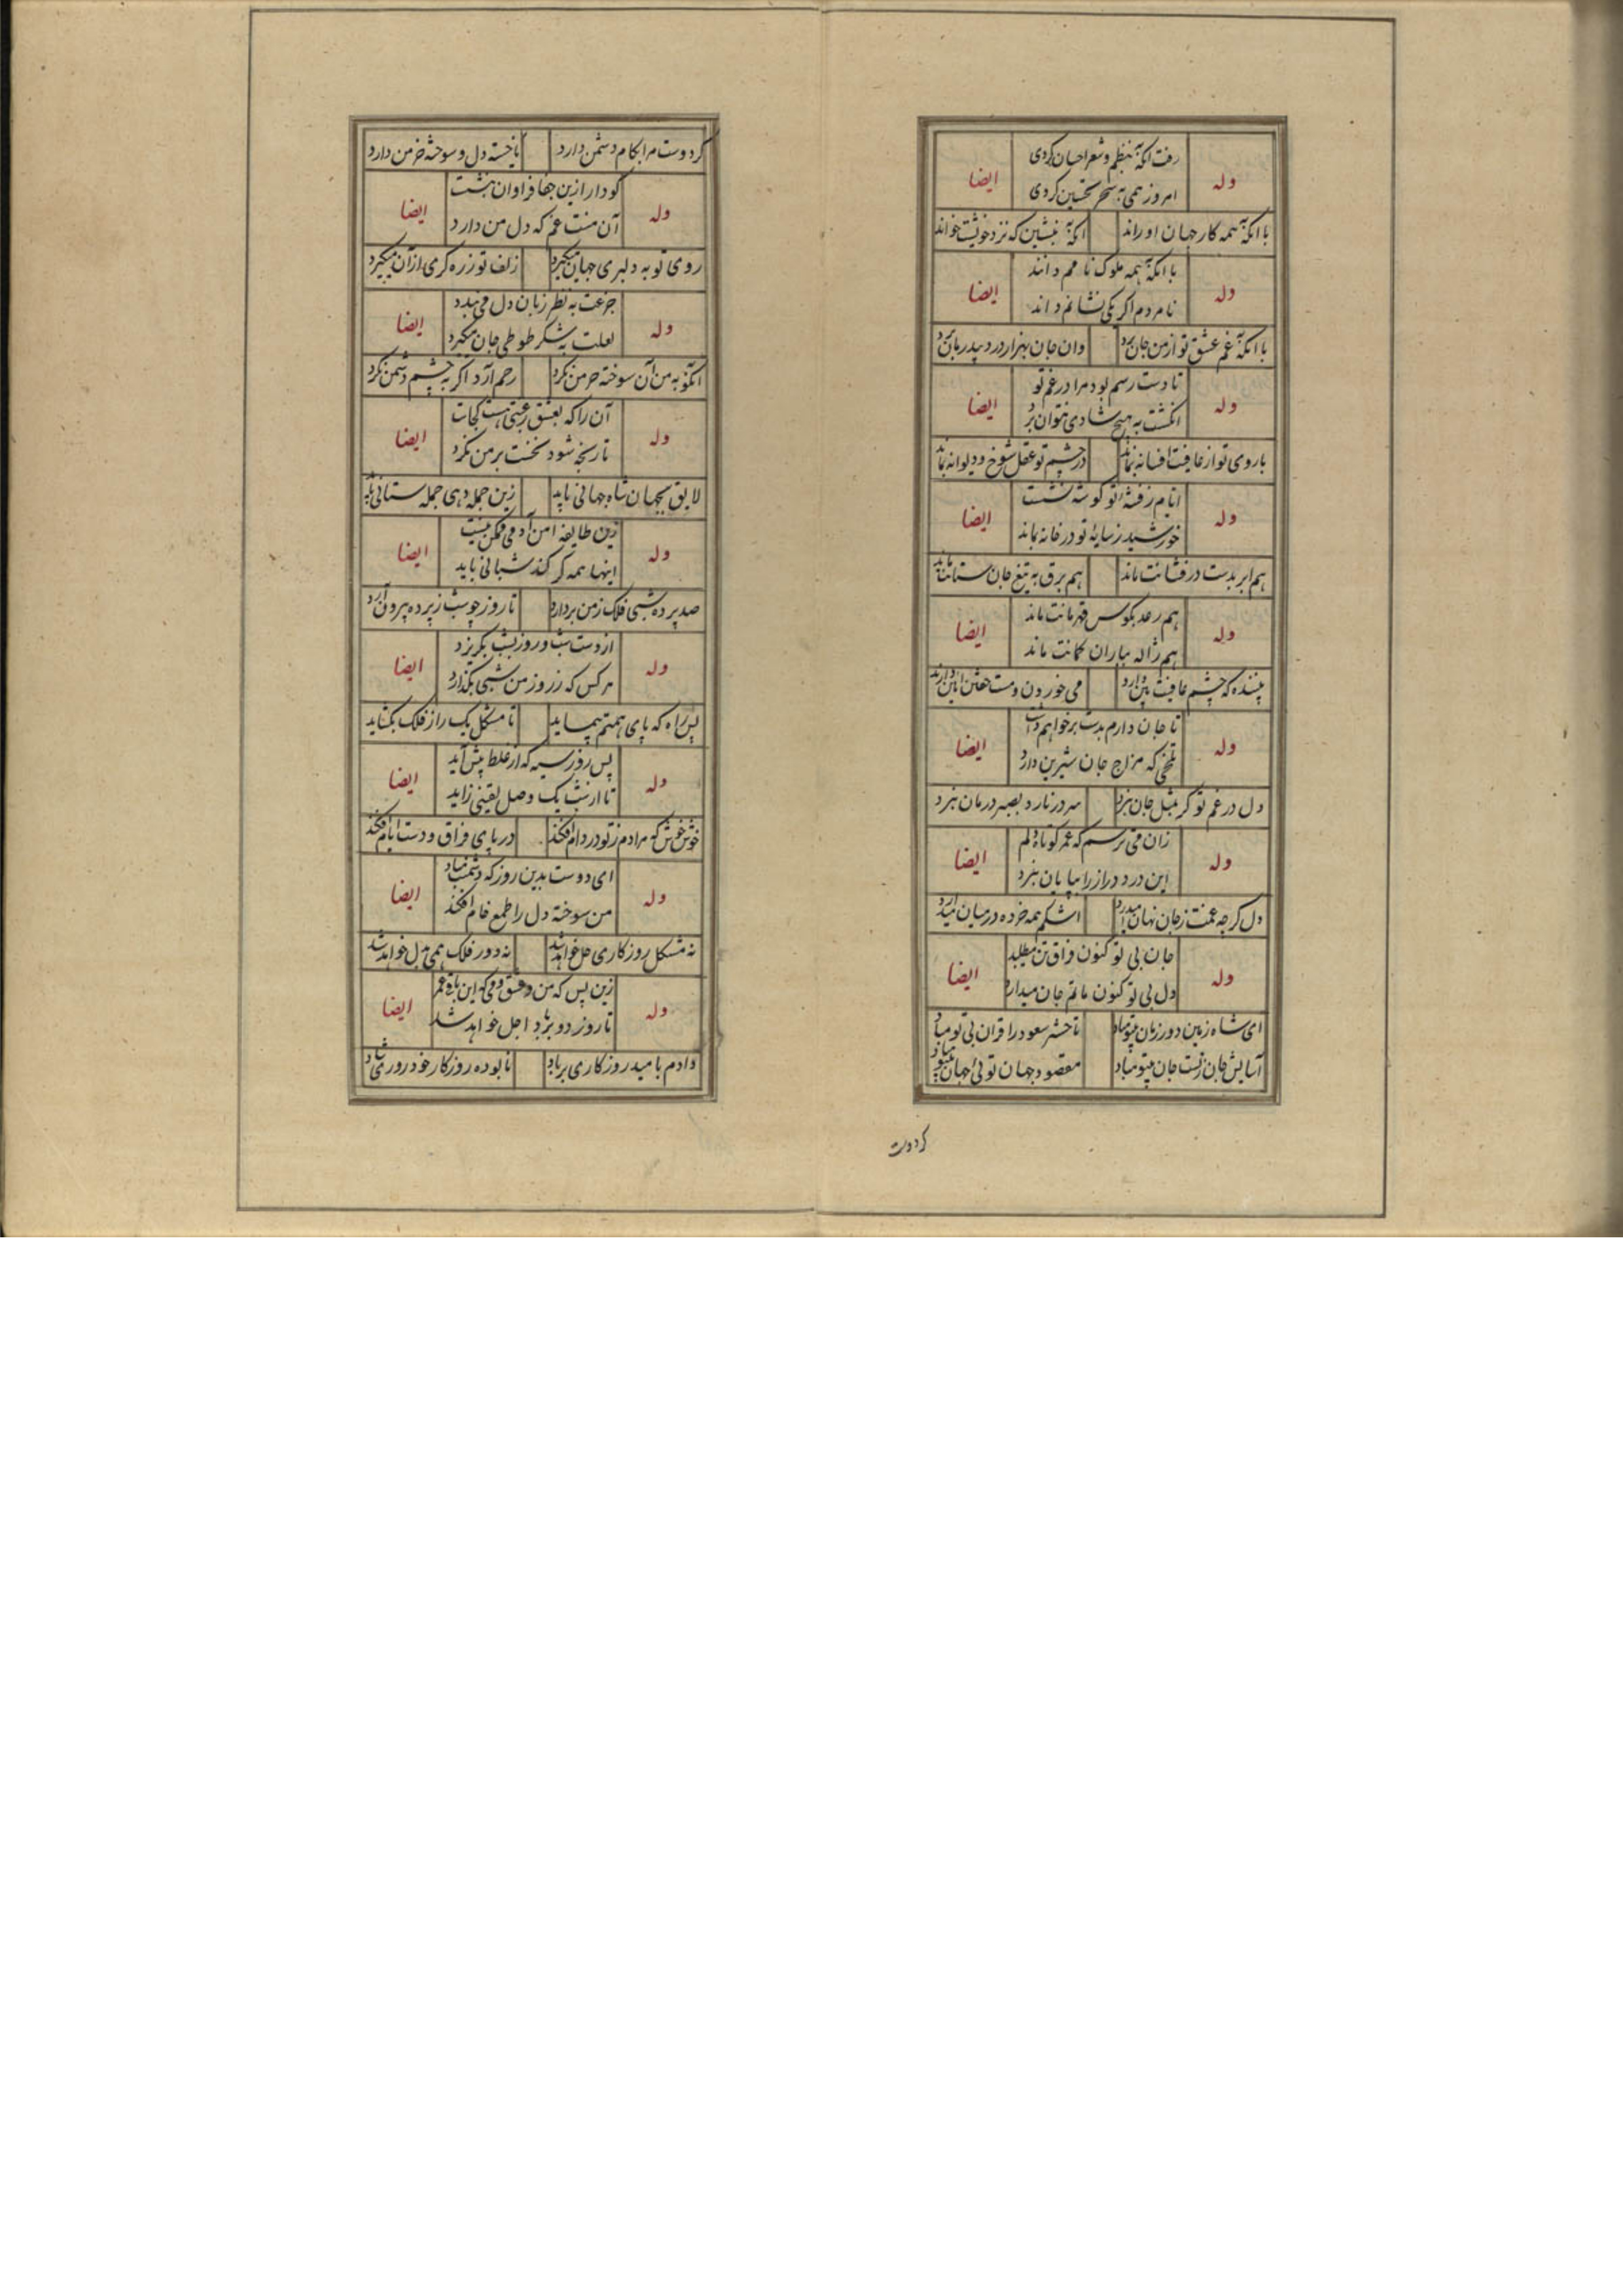 رفت آنکه بنظم و شعر احسان کردی
وله ایضا
امروز همی به سحر تحسین کردی
با آنکه همه کار جهان او راند آنکه بنشین که نزد خویشت خواند
با آنکه همه ملوک نامم دانند
وله ایضا
نامردم اگر یکی نشانم داند
با آنکه غم عشق تو از من جان برد وان جان بهزار درد بیدرمان برد
تا دست رسم بود مرا در غم تو
وله ایضا
انگشت به هیچ شادی نتوان برد
با روی تو از عافیت افسانه بماند در چشم تو عقل شوخ و دیوانه بماند
ایام ز فتنه تو گوشه نشست
وله ایضا
خورشید ز سایه تو در خانه بماند
هم ابر بدست درفشانت ماند هم برق به تیغ جان ستانت ماند
هم رعد بکوس قهرمانت ماند
وله ایضا
هم ژاله بباران کمانت ماند
بیننده که چشم عافیت بین دارد می خوردن و مست خفتن آیین دارد
تا جان دارم بدست برخواهم داشت
وله ایضا
تلخی که مزاج جان شیرین دارد
دل در غم تو گر بمثل جان نبرد سر در نارد بصبر درمان نبرد
زان می ترسم که عمر کوتاه دلم
وله ایضا
این درد دراز را بپایان نبرد
دل گرچه غمت ز جان نهان میدارد اشکم همه خرده در میان می‌آرد
جان بی تو کنون فراق تن میطلبد
وله ایضا
دل بی تو کنون ماتم جان میدارد
ای شاه زمین دور زمان بیتو مباد تا حشر سعود را قران بی تو مباد
آسایش جان ز تست جان بیتو مباد مقصود جهان توئی جهان بیتو مباد
گر دوست
گر دوست مرا بکام دشمن دارد یا خسته دل و سوخته خرمن دارد
گو دار ازین جفا فراوان بیشت
وله ایضا
آن منت غم که دل من دارد
روی تو به دلبری جهان میگیرد زلف تو زره گری از آن میگیرد
جزعت به نظر زبان دل می‌بندد
وله ایضا
لعلت به شکر طوطی جان میگیرد
آنکو به من آن سوخته خرمن نگرد رحم آرد اگر به چشم دشمن نگرد
آن را که بعشق رغبتی هست کجاست
وله ایضا
تا رنجه شود نخست بر من نگرد
لایق بجهان شاه جهانی باید زین جمله دهی جمله ستانی باید
زین طایفه امن آدمی ممکن نیست
وله ایضا
اینها همه گرگند شبانی باید
صد پرده شبی فلک ز من بردارد تا روز چو شب ز پرده بیرون آرد
از دست شب و روز بشب بگریزد
وله ایضا
هر کس که ز روز من شبی بگذارد
بس راه که پای همتم پیماید تا مشکل یک راز فلک بگشاید
بس روز سیه که از غلط پیش آید
وله ایضا
تا از شب یک وصل یقینی زاید
خوش خوش که مرا دم ز تو در دام فکند در پای فراق و دست ایام فکند
ای دوست بدین روز که دشمنت مباد
وله ایضا
من سوخته دل را طمع خام افکند
نه مشکل روزگاری حل خواهد شد نه دور فلک همی بدل خواهد شد
زین پس که من و عشق و می که این باقی عمر
وله ایضا
تا روز دو بر باد اجل خواهد شد
دادم بامید روزگاری بر باد نابوده ز روزگار خود روزی شاد